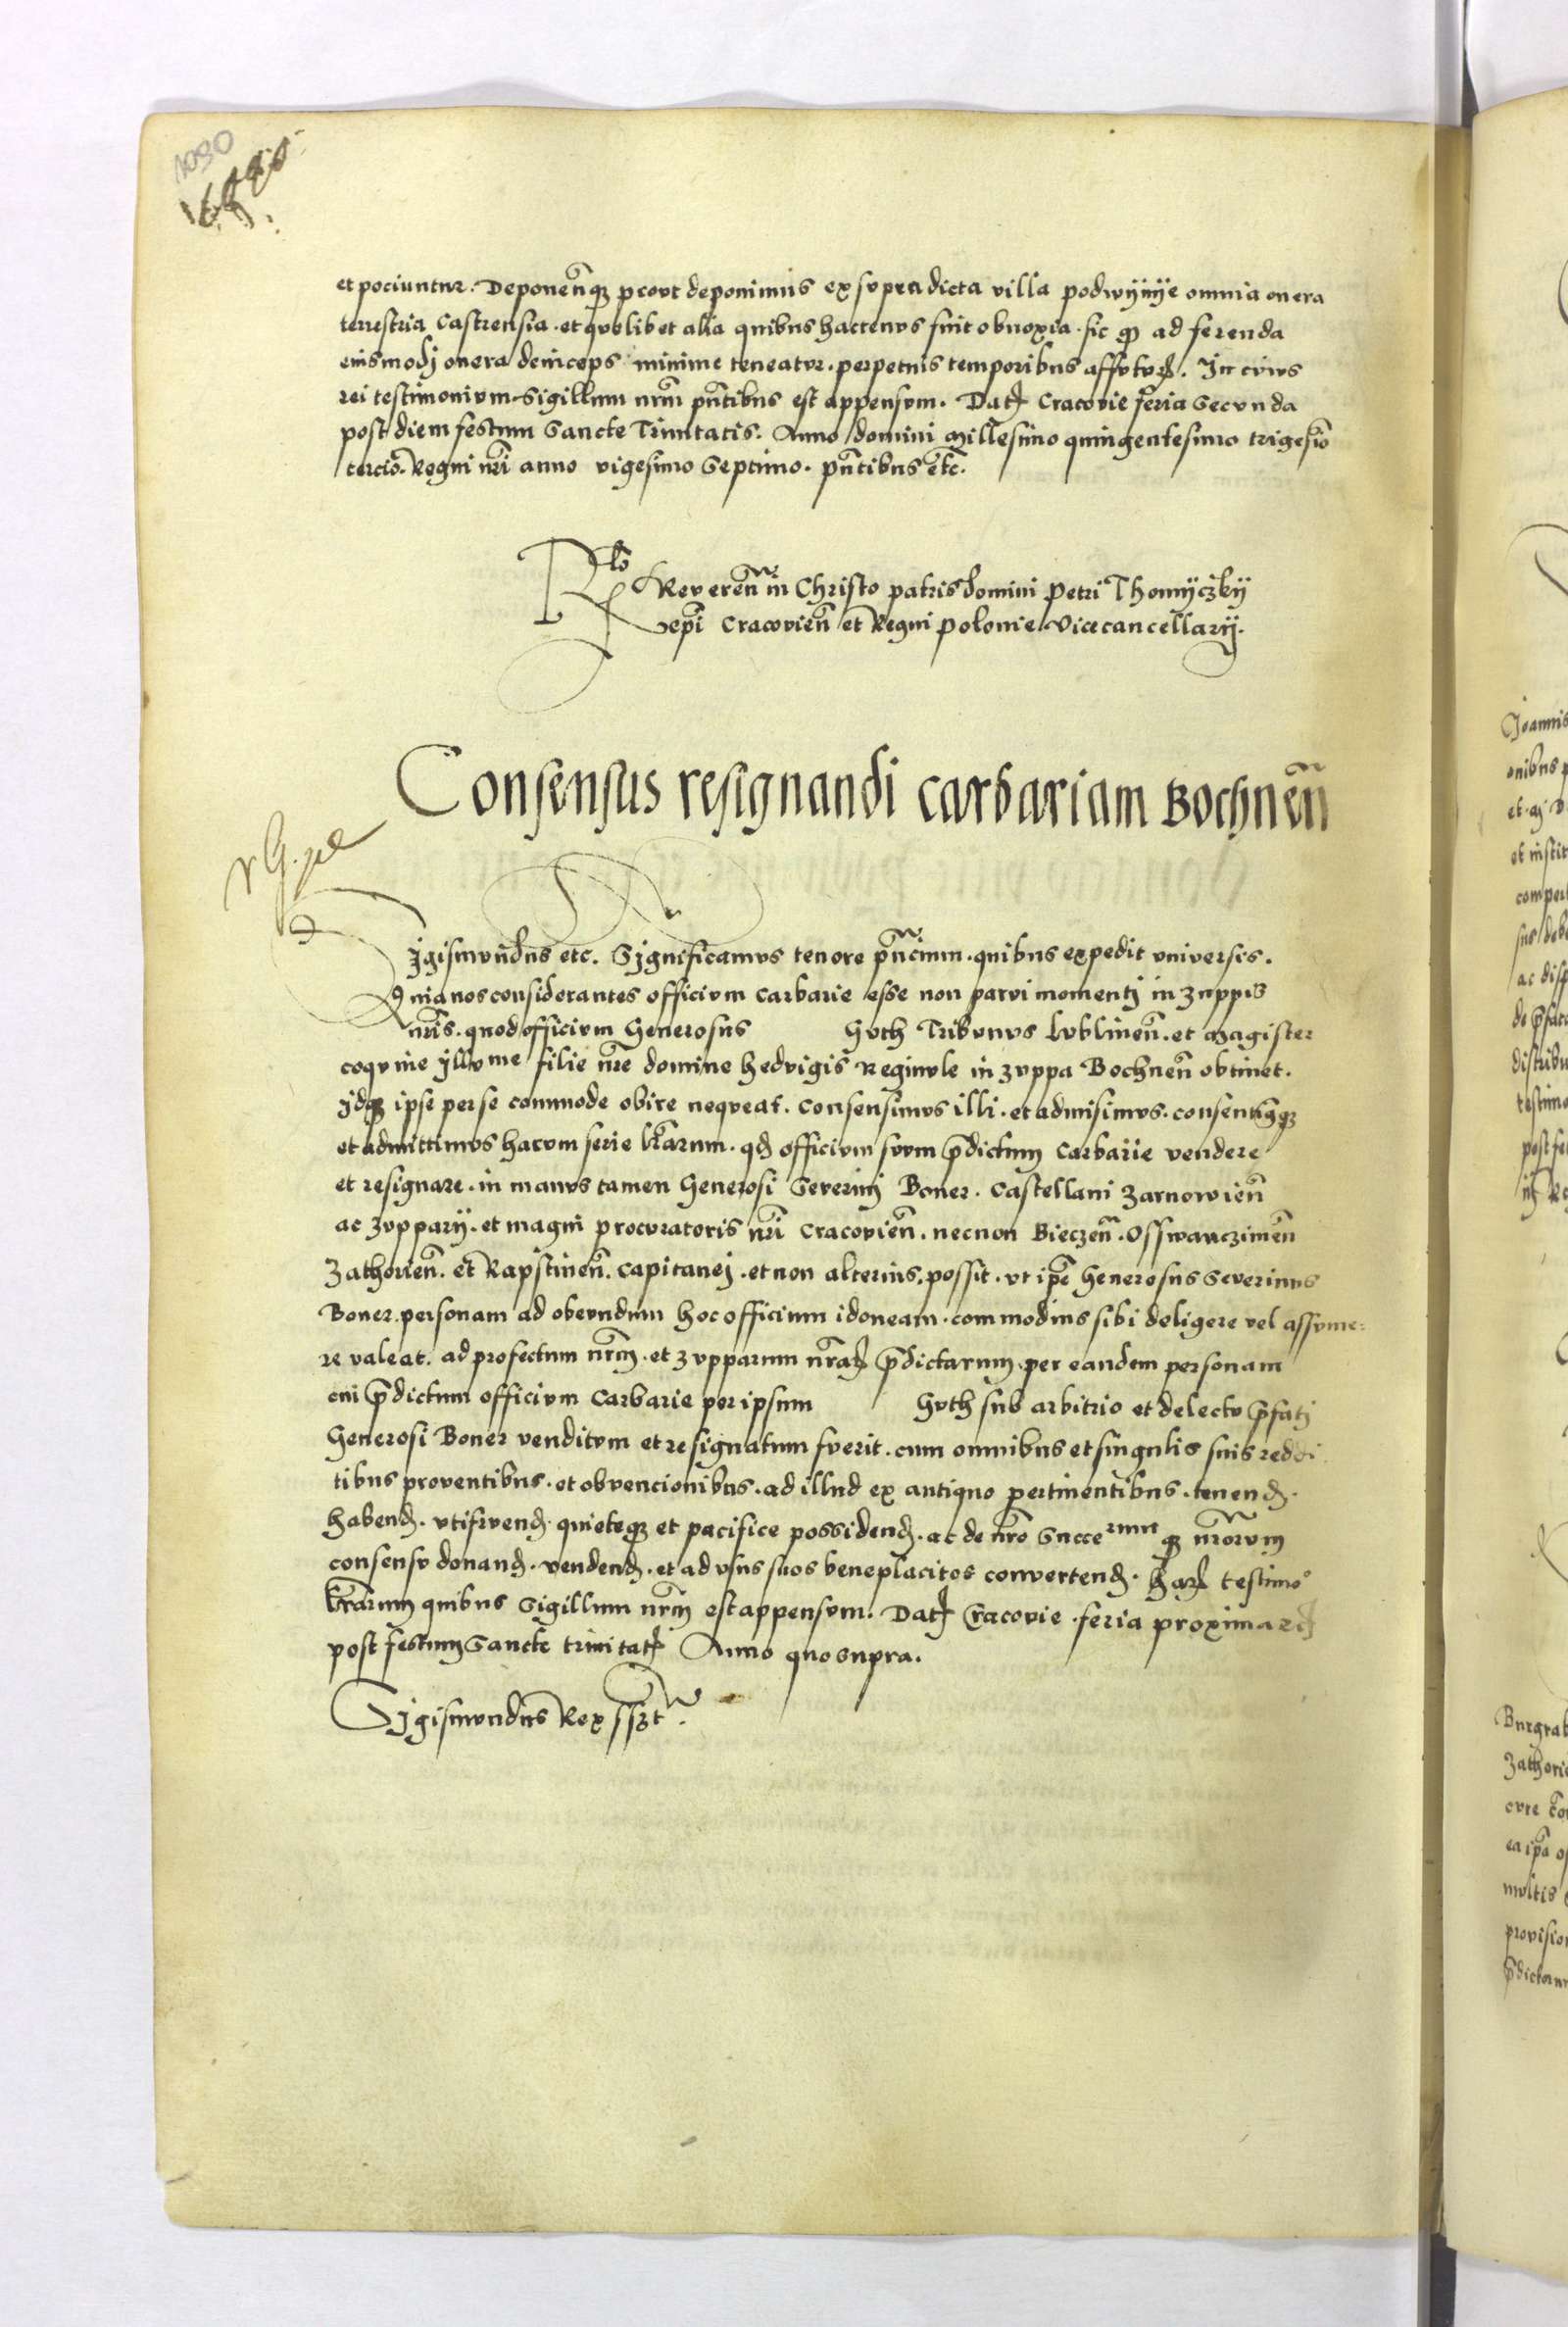 1030
et pociuntur. Deponen̄q̨ prout deponimus ex supra dicta villa podwÿnÿe omnia onera
terrestria Castrensia. et quelibet alia quibus hactenus fuit obnoxia. sic q̄ ad ferenda
eiusmodj onera deinceps minime teneatur. perpetuis temporibus affuturꝝ. In cuius
rei testimonium Sigillum nr̄m pn̄tibus est appensum. Datꝭ Cracovie feria Secunda
post diem festum Sancte Trinitatis. Anno domini Millesimo quingentesimo trigesīo
tercio. Regni nr̄i anno vigesimo Septimo. pn̄tibus etc̄.
Rlō Reveren̄ in Christo patris domini Petri Thomÿczkÿ
epī Cracovien̄ et Regni Polonie Vicecancellarij.
Consensus resignandi carbariam Bochnen̄
Sigismundus etc. Significamus tenore pn̄cium. quibus expedit universis.
Quia nos considerantes officium Carbarie esse non parvi momentj in zuppis
nr̄is. quod officium Generosus Guth Tribunus lublinen̄. et Magister
coquine Ill^me filie nr̄e domine hedvigis Reginule in zuppa Bochnen̄ obtinet.
Idq̨ ipse per se commode obire nequeat. Consensimus illi. et admisimus. consentimq̨
et admittimus harum serie lr̄arum. qđ officium suum p̄dictum Carbarie vendere
et resignare. in manus tamen Generosi Severinj Boner. Castellani Zarnowien̄
ac zupparij. et magni procuratoris nr̄i Cracovien̄. necnon Bieczen̄. Osswanczimen̄
Zathorien̄. et Rapstinen̄. Capitanej. et non alterius. possit. ut ip̄e Generosus Severinus
Boner. personam ad obeundum hoc officium idoneam. commodius sibi deligere vel assume=
re valeat. ad profectum nr̄m. et zupparum nr̄aꝝ p̄dictarum. per eandem personam
cui p̄dictum officium Carbarie per ipsum Guth sub arbitrio et delectu p̄fatj
Generosi Boner venditum et resignatum fuerit. cum omnibus et singulis suis reddi
tibus proventibus. et obvencionibus. ad illud ex antiquo pertinentibus. tenenđ.
habenđ. utifruenđ. quieteq̨ et pacifice possidenđ. ac de nr̄o Succe^rum q̨ nr̄orum
consensu donanđ. vendenđ. et ad usus suos beneplacitos convertenđ. harꝝ testimo°
lr̄arum quibus Sigillum nr̄m est appensum. Datꝭ Cracovie. feria proxima
post festum Sancte trinitatꝭ Anno quo supra.
Sigismundus Rex sszt.